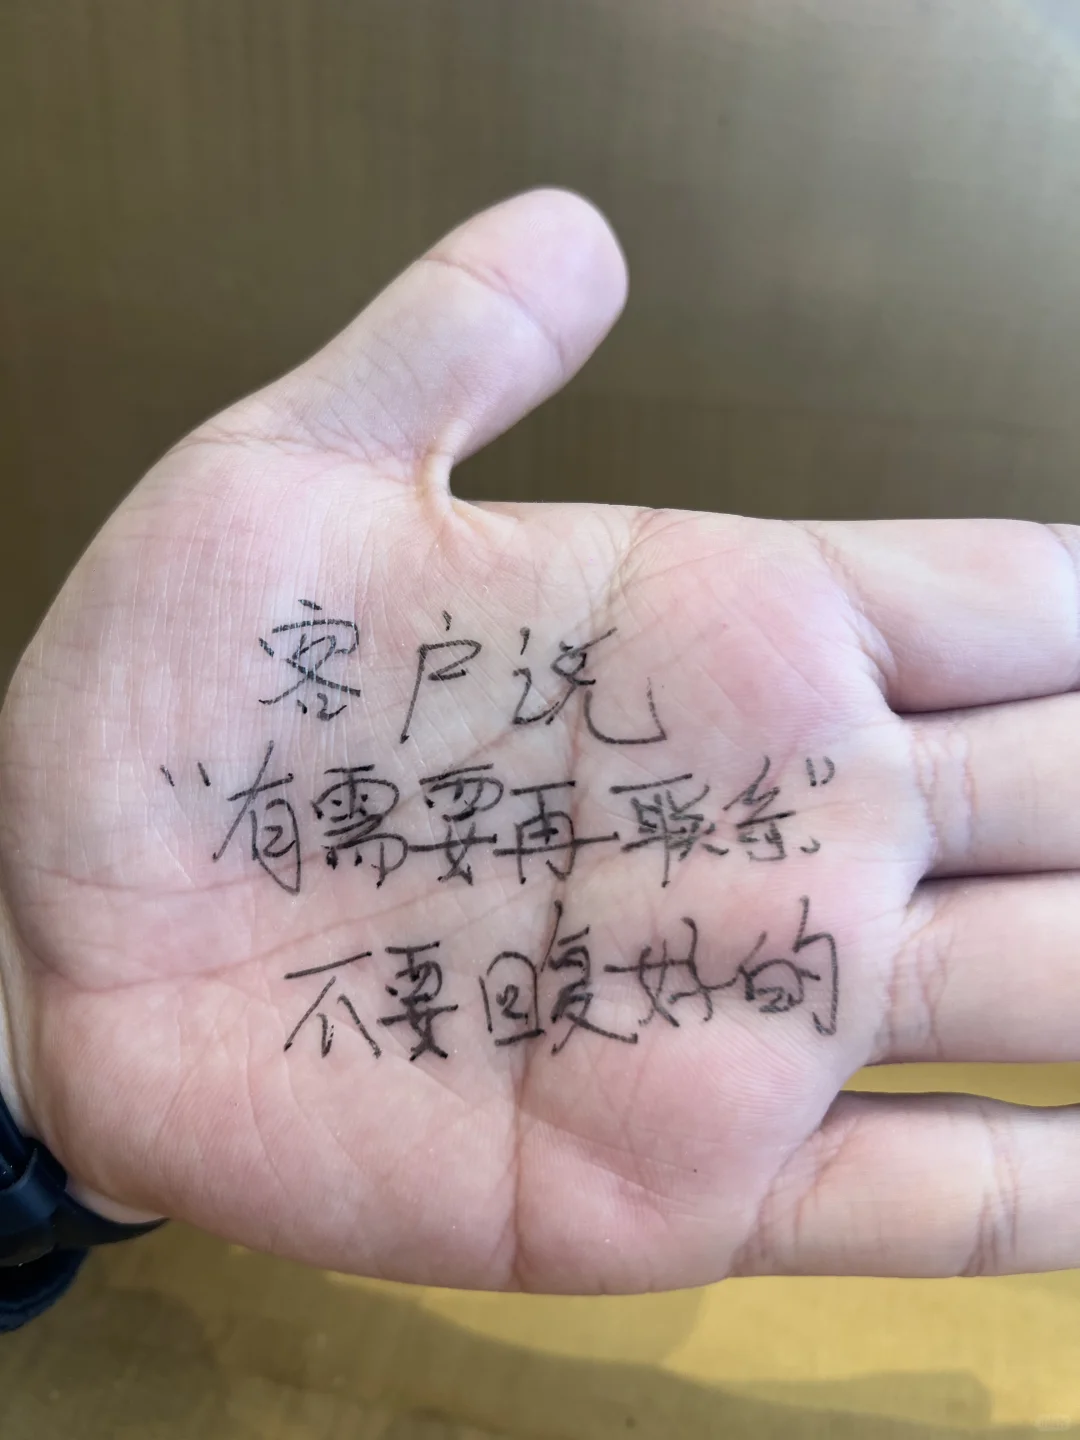 客户说
“有需要再联系”
不要回复好的